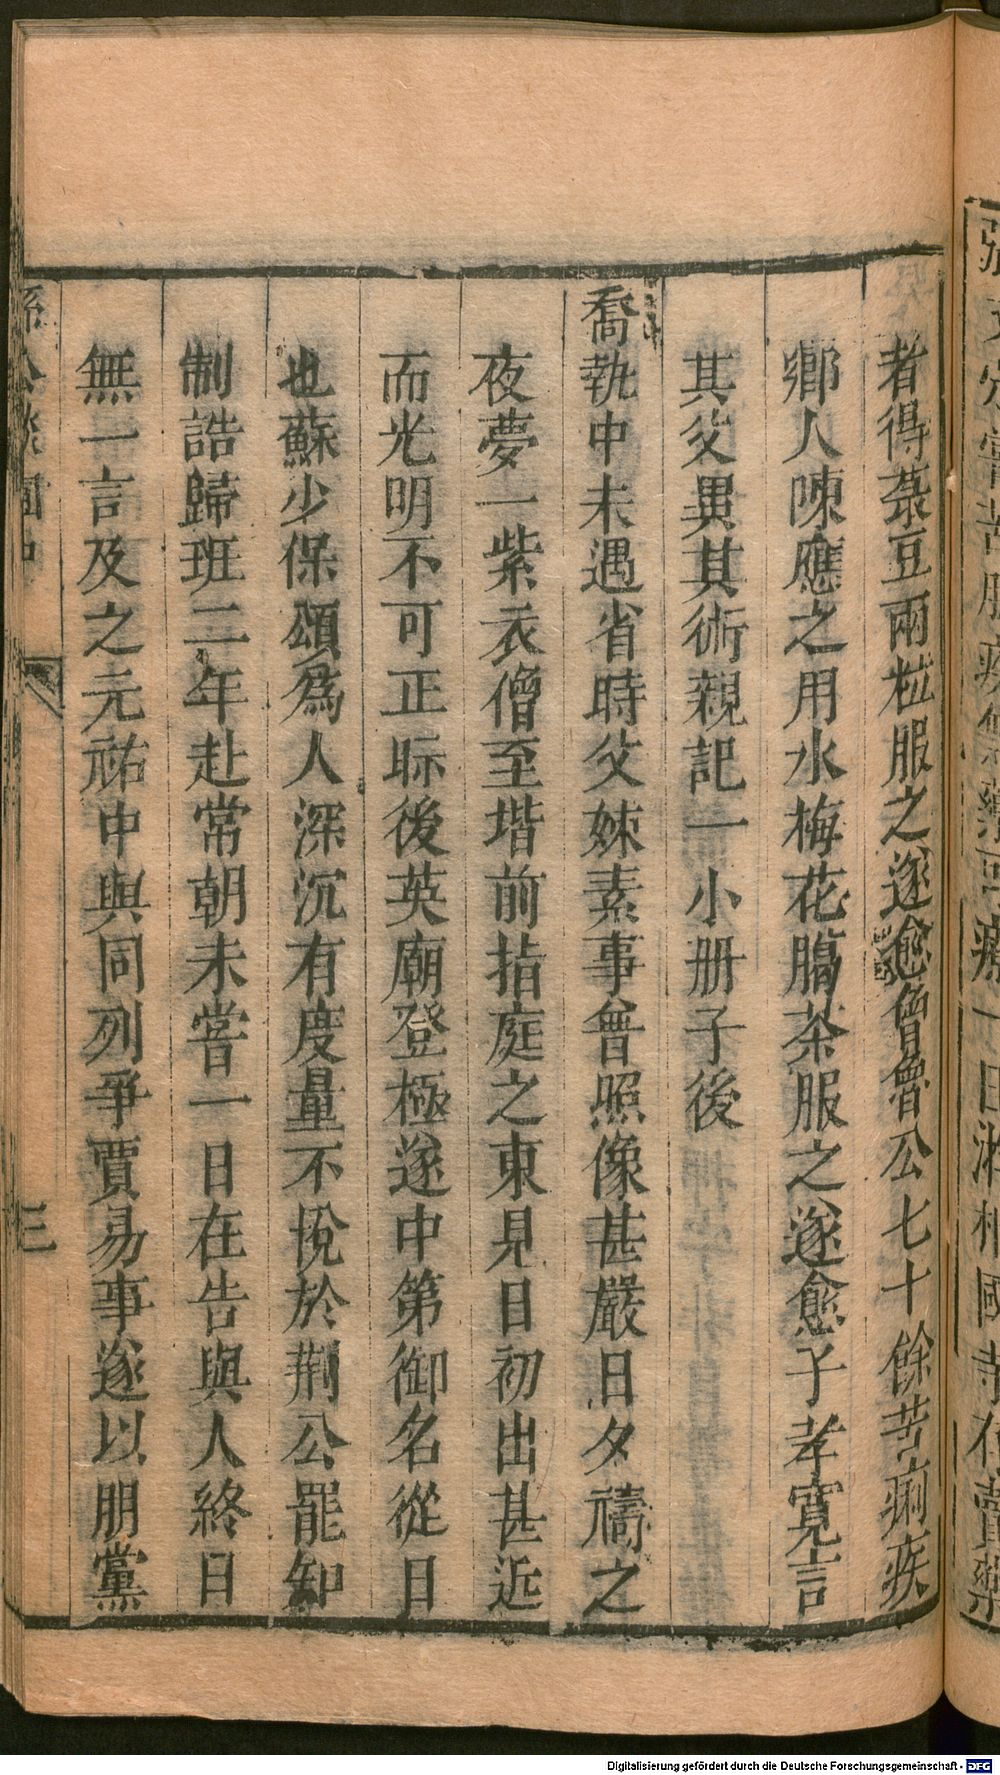 者得菉豆兩粒服之遂愈曾魯公七十餘苦痢疾
鄉人陳應之用水梅花臈茶服之遂愈子孝寬言
其父異其術親記一小册子後
喬執中未遇省時父妹素事曾照像甚嚴日夕禱之
夜夢一紫衣僧至堦前指庭之東見日初出甚近
而光明不可正眎後英廟登極遂中第御名從日
也蘇少保頌爲人深沉有度量不悅於荆公罷知
制誥歸班二年赴常朝未嘗一日在告與人終日
無一言及之元祐中與同列爭賈易事遂以朋黨
孫公談圃中
三
Digitalisierung gefördert durch die Deutsche Forschungsgemeinschaft - DFG